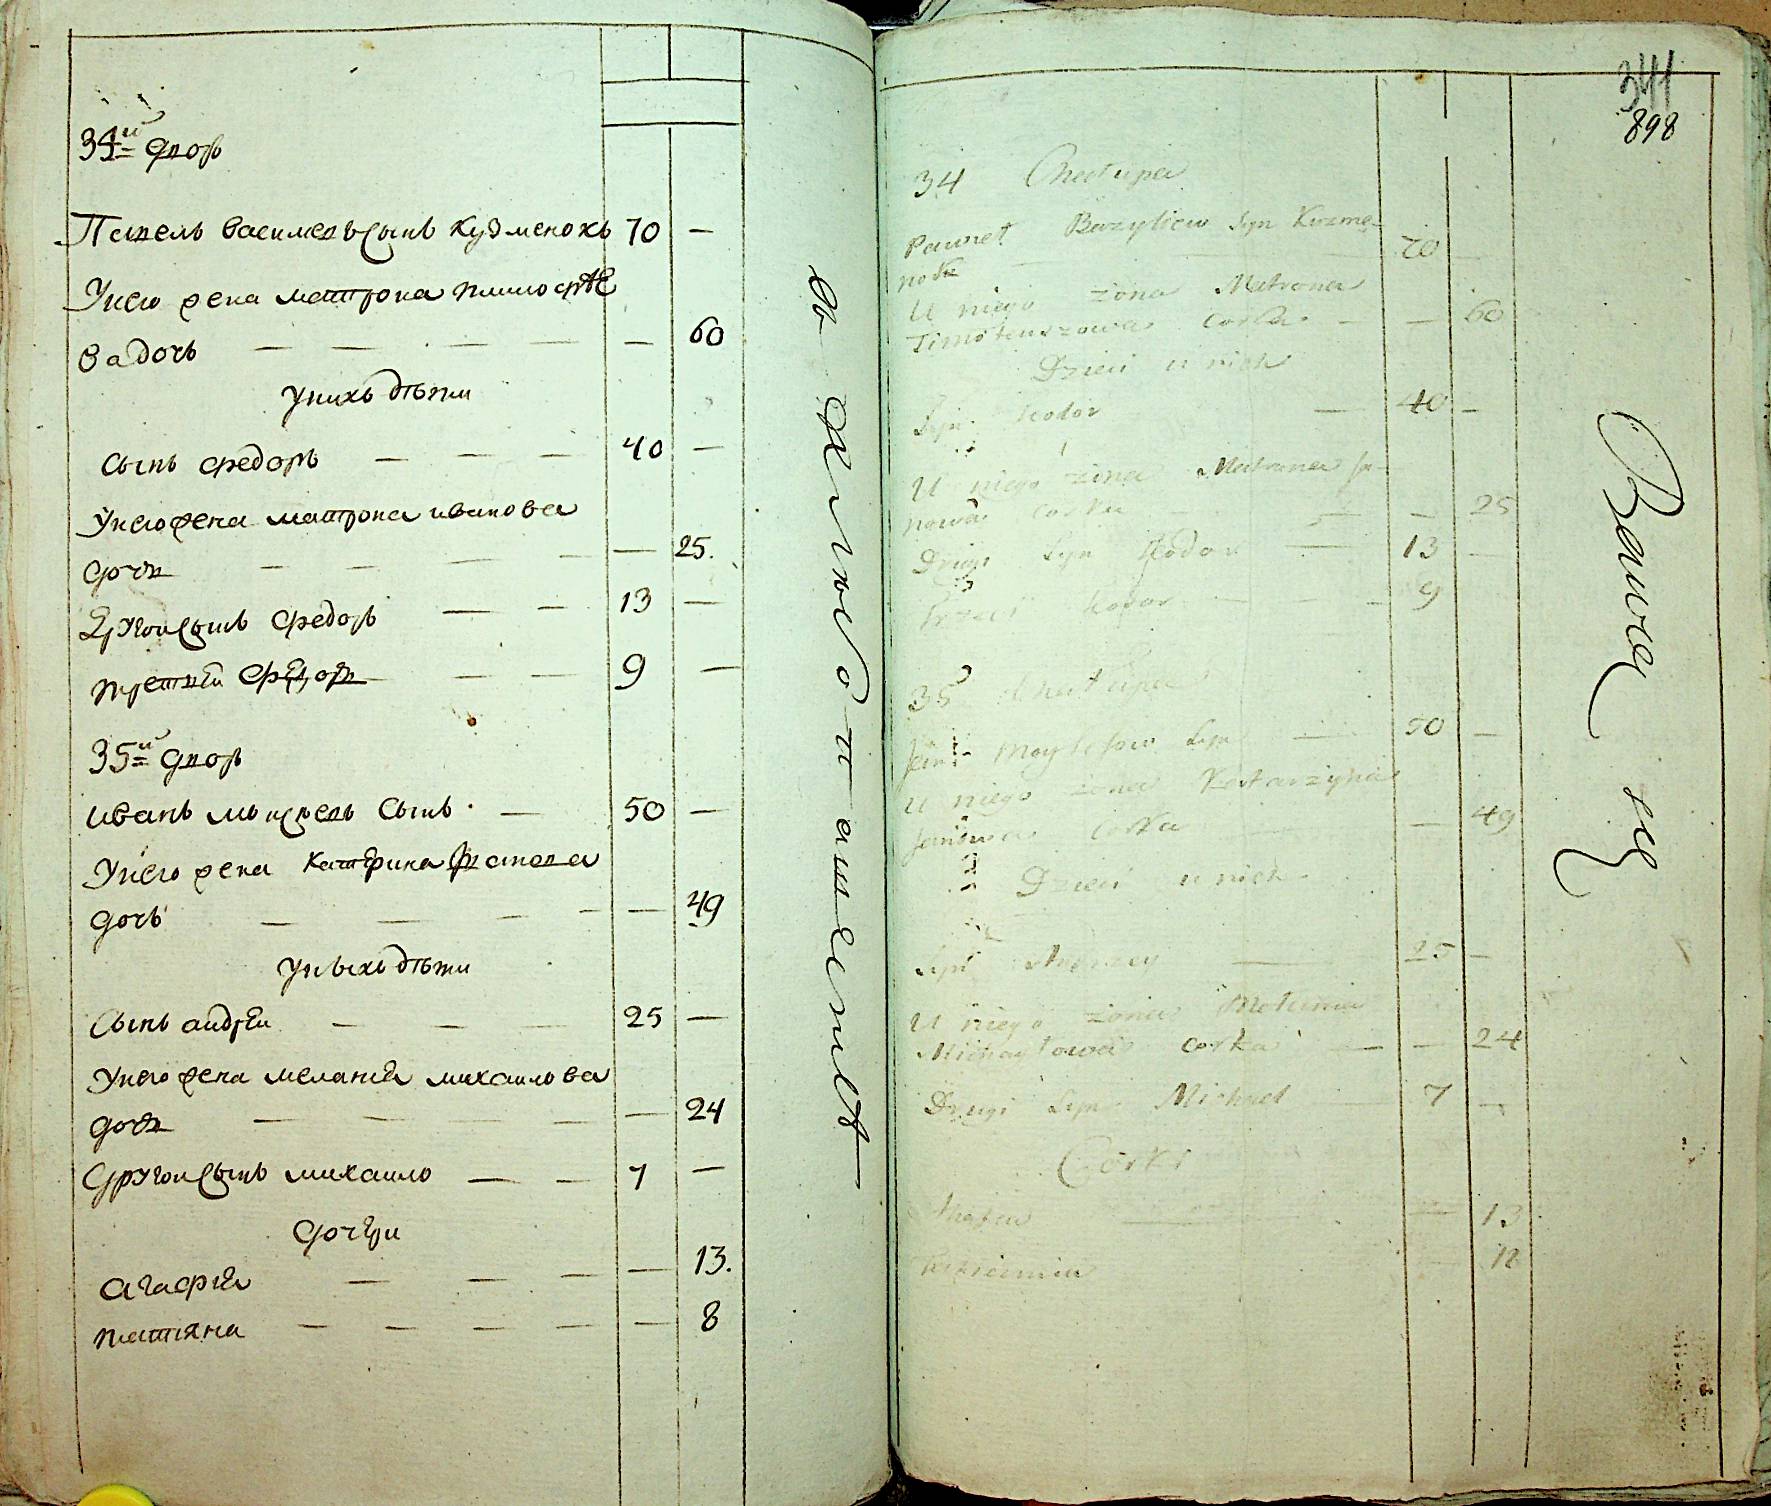 34й дворъ
Павелъ василевъ сынъ кузменокъ 70 —
Унего жена матрона тимофѣе
ва дочь — — — — — 60
Унихъ дѣти
Сынъ федоръ — — — 40 —
Унего жена матрона иванова
дочь — — — — — 25.
Другой сынъ федоръ — — 13 —
третей федоръ — — 9 —
35й дворъ
иванъ мойсеевъ сынъ — 50 —
Унего жена катерина
дочь — — — — — 49
Унихъ дѣти
Сынъ андрей — — — 25 —
Унего жена меланья михаилова
дочь — — — — — 24
Другой сынъ михаило — — 7 —
дочери
агафия — — — — 13.
татияна — — — — — 8
341
898
34 Chałupa
Paweł Bazyliew Syn Kuzme-
nok 70
U niego żona Matrona
Timoteuszowa corka — — 60
Dzieci u nich
Syn Teodor — 40 —
U niego żona Matrona Ja-
nowa corka — — 25
Drugi Syn Teodor — 13 —
Trzeci Teodor — — — 9
35 Chałupa
Jan Syn — 50 —
U niego żona Katarzyna
corka — 49
Dzieci u nich
Syn Andrzey — 25 —
U niego żona
Michayłowa corka — — 24
Drugi Syn Michał 7 —
Corki
13